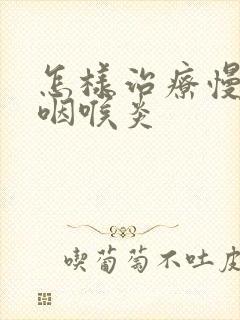 怎樣治療慢
咽喉炎
喫葡萄不吐皮